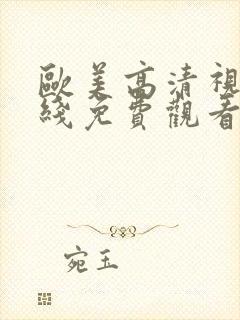 歐美高清視
綫免費觀看
宛玉